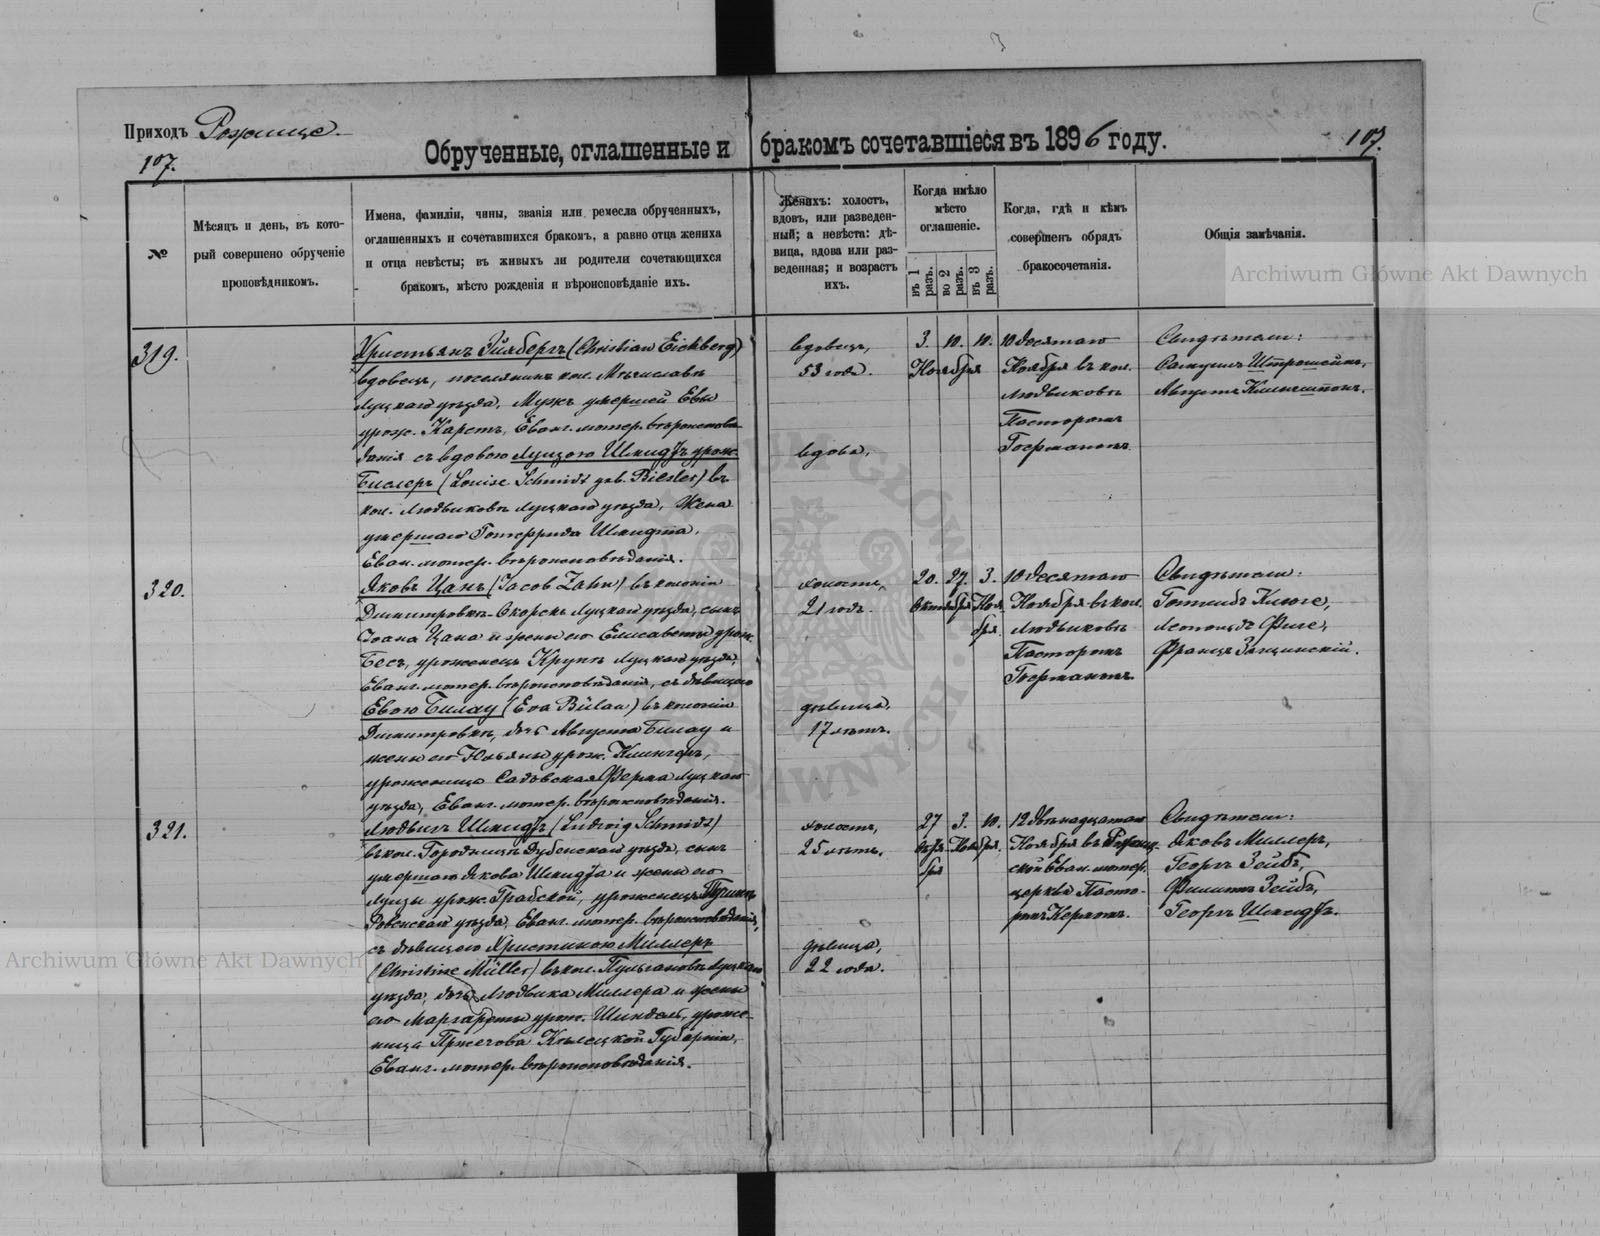 Приходъ Рожище.
107.
Обрученные, оглашенные и бракомъ сочетавшіеся въ 1896 году.
107.
№
Мѣсяцъ и день, въ кото-
рый совершено обрученіе
проповѣдникомъ.
Имена, фамиліи, чины, званія или ремесла обрученныхъ,
оглашенныхъ и сочетавшихся бракомъ, а равно отца жениха
и отца невѣсты; въ живыхъ ли родители сочетающихся
бракомъ, мѣсто рожденія и вѣроисповѣданіе ихъ.
Женихъ: холостъ,
вдовъ, или разведен-
ный; а невѣста: дѣ-
вица, вдова или раз-
веденная; и возрастъ
ихъ.
Когда имѣло
мѣсто
оглашеніе.
въ 1 разъ.
во 2 разъ.
въ 3 разъ.
Когда, гдѣ и кѣмъ
совершенъ обрядъ
бракосочетанія.
Общія замѣчанія.
Archiwum Główne Akt Dawnych
319.
Христьянъ Эйхбергъ (Christian Eichberg)
вдовецъ, поселянинъ кол. Мѣчиславъ
Луцкаго уѣзда, Мужъ умершей Евы
урож. Карстъ, Еванг. лютер. вѣроисповѣ-
данія съ вдовою Луизою Шмидтъ урож.
Бислеръ (Louise Schmidt geb. Biesler) въ
кол. Людвиковъ Луцкаго уѣзда, Жена
умершаго Готтфрида Шмидта,
Еван. лютер. вѣроисповѣданія.
вдовецъ,
53 года.
вдова,
3. 10. 10.
Ноября
10 десятаго
Ноября въ кол.
Людвиковъ
Пасторомъ
Гоерманомъ.
Свидѣтели:
Августъ Клингштонъ.
320.
Яковъ Цанъ (Jacob Zahn) въ колоніи
Димитровкѣ-Скорскъ Луцкаго уѣзда, сынъ
Іоана Цана и жены его Елисаветы урож.
Бесъ, уроженецъ Крупъ Луцкаго уѣзда,
Еванг. лютер. вѣроисповѣданія, съ дѣвицею
Евою Билау (Eva Bielau) въ колоніи
Димитровкѣ, дочь Августа Билау и
жены его Юльяны урож. Клингеръ,
уроженица Садовская Ферма Луцкаго
уѣзда, Еванг. лютер. вѣроисповѣданія.
холостъ,
21 годъ.
дѣвица.
17 лѣтъ.
20. 27. 3.
Октября Ноя-
бря.
10 десятаго
Ноября въ кол.
Людвиковъ
Пасторомъ
Гоерманомъ.
Свидѣтели:
Готлибъ Клюге,
Леопольдъ Фиге,
Францъ Защинскій.
321.
Людвигъ Шмидтъ (Ludwig Schmidt)
въ кол. Городницъ Дубенскаго уѣзда, сынъ
умершаго Якова Шмидта и жены его
Луизы урож. Грабской, уроженецъ
Ровенскаго уѣзда, Еванг. лютер. вѣроисповѣданія,
съ дѣвицею Христиною Миллеръ
(Christine Müller) въ кол. Пульгановъ Луцкаго
уѣзда, дочь Людвика Миллера и жены
его Маргареты урож. Шиндель, уроже-
ница Пржечова Кѣлецкой Губерніи,
Еванг. лютер. вѣроисповѣданія.
холостъ,
25 лѣтъ.
дѣвица,
22 года.
27 3. 10.
Октя- Ноября.
бря
12 двѣнадцатаго
Ноября въ Рожищ-
ской Еван. лютер.
церкви Пасто-
ромъ Керномъ.
Свидѣтели:
Яковъ Миллеръ,
Георгъ Зейбъ,
Филиппъ Зейбъ,
Георгъ Шмидтъ.
Archiwum Główne Akt Dawnych